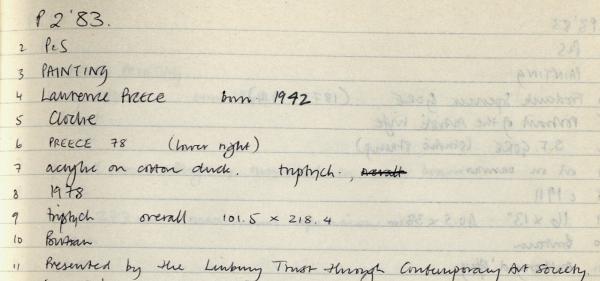 P 2 '83.
2 P&S
3 PAINTING
4 Lawrence PREECE born 1942
5 Cloche
6 PREECE 78 (lower right)
7 acrylic on cotton duck. triptych.,
8 1978
9 triptych overall 101.5 x 218.4
10
11 Presented by the Linbury Trust through Contemporary Art Society.